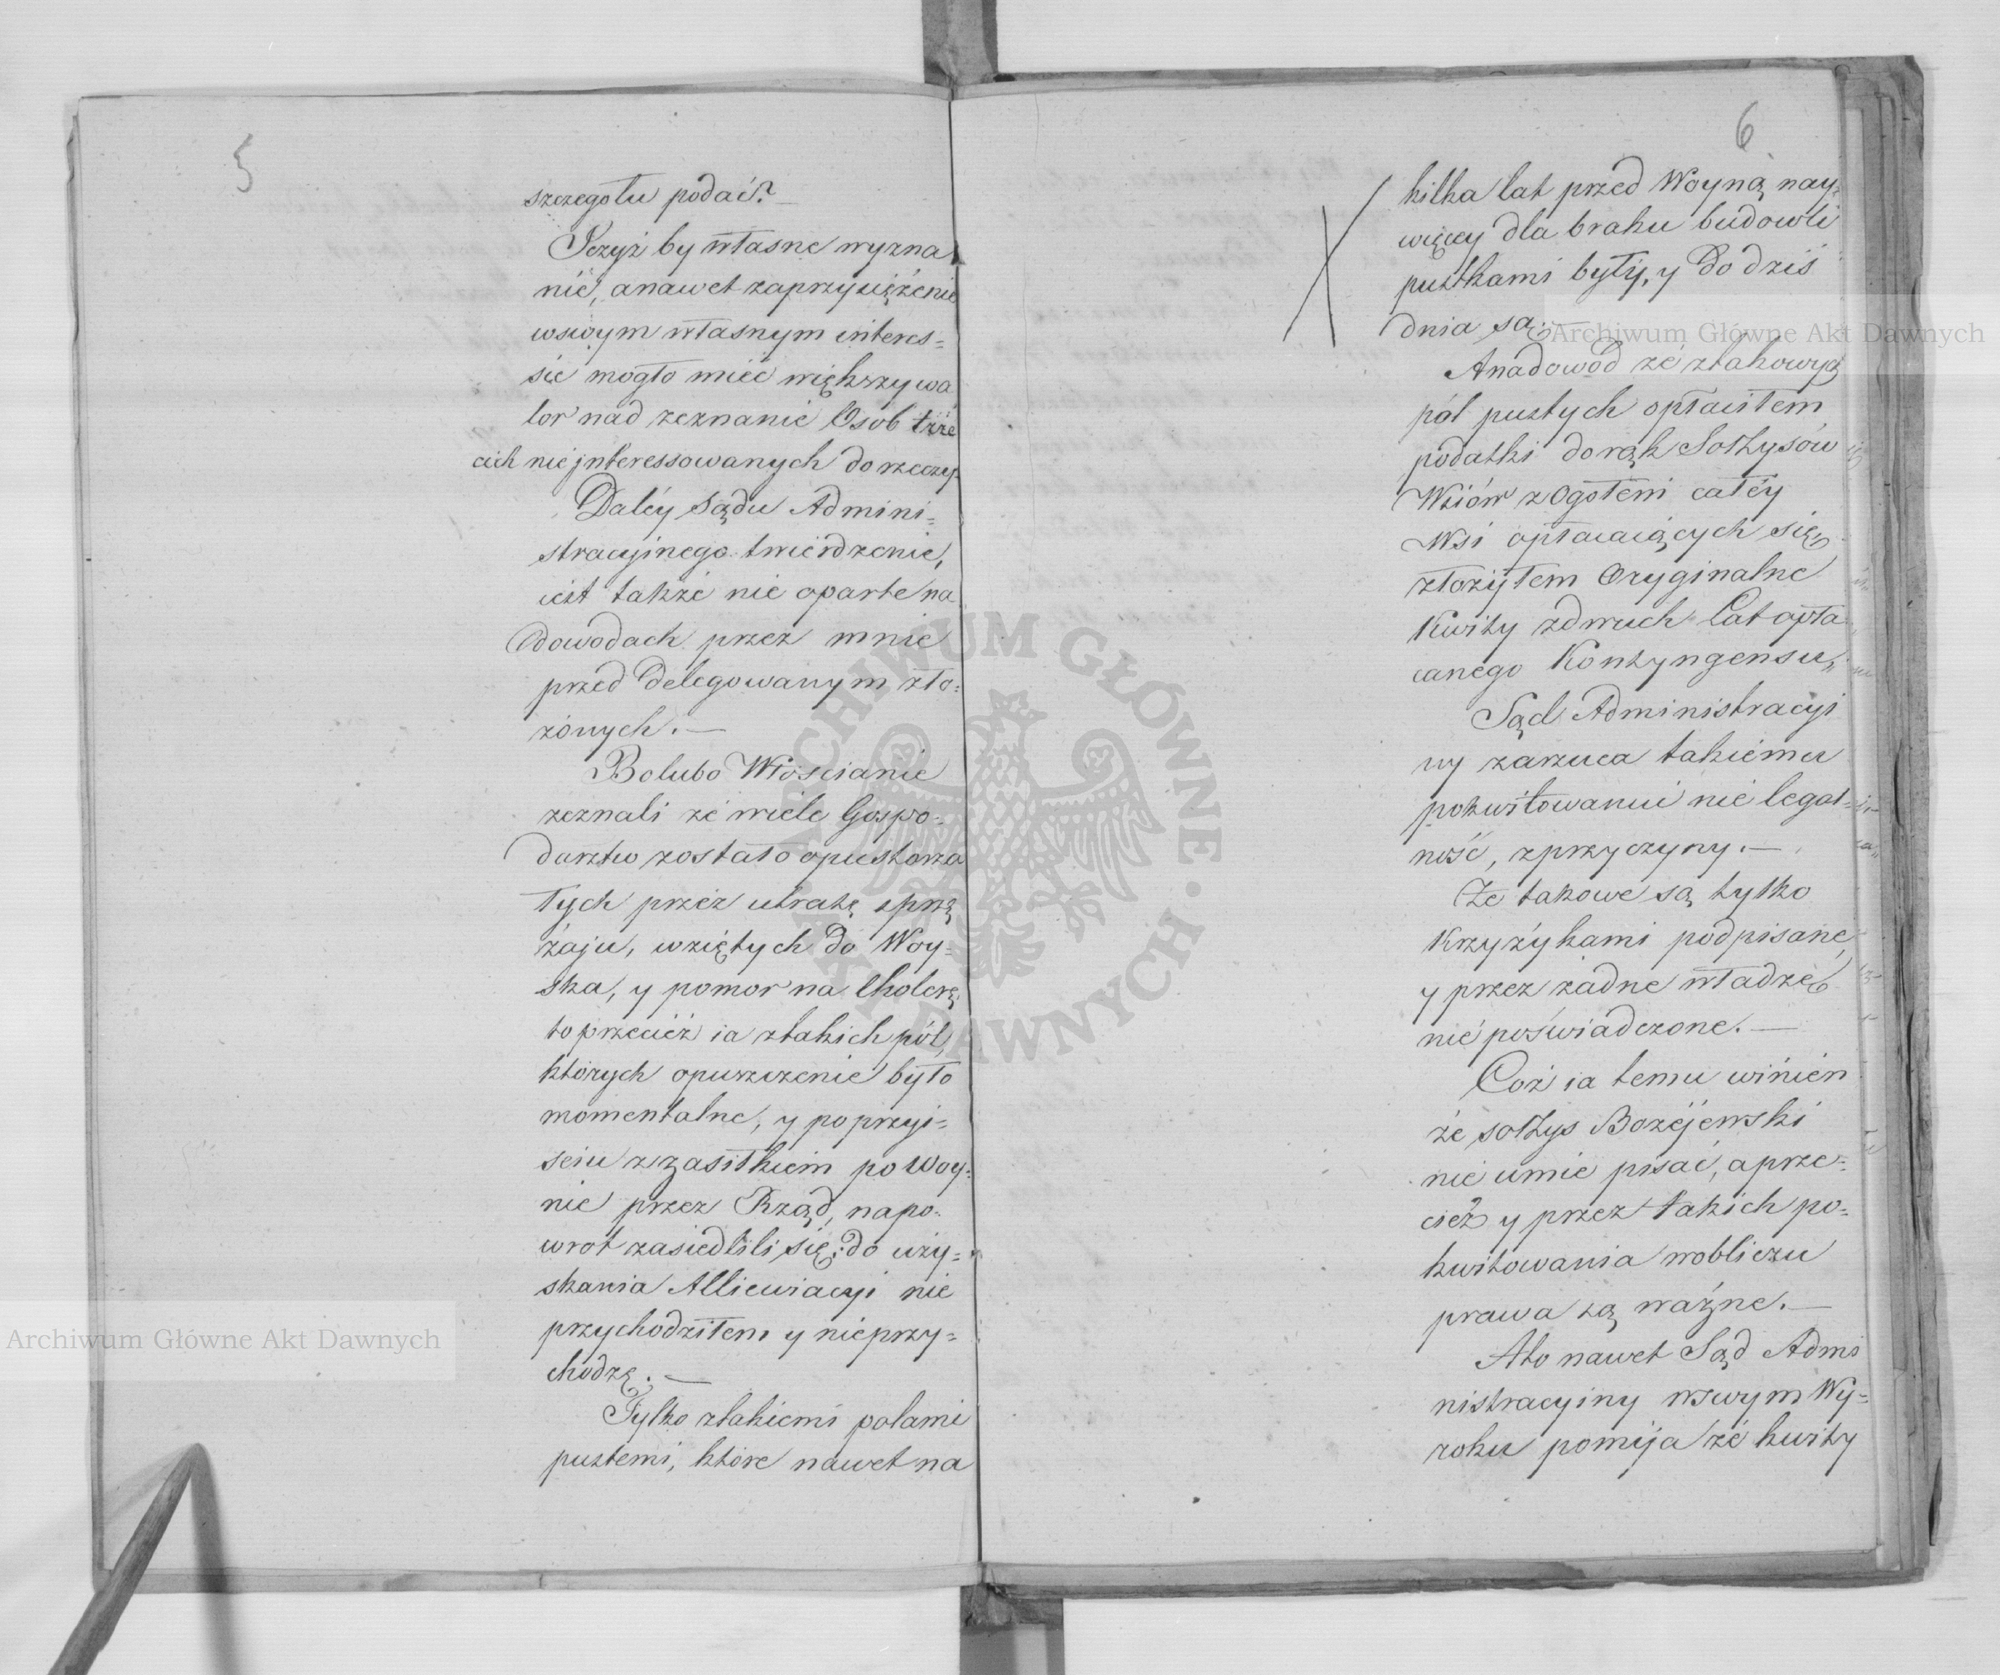 5
szczegołu podać? —
Jeżyż by własne wyzna
nie, anawet zaprzysiężenie
wswym własnym interes=
sie mogło mieć większy wa
lor nad zeznanie Osób trze
cich nie jnteressowanych do rzeczy.
Daléy Sądu Admini=
stracyinego twierdzenie,
iest także nie oparte na
dowodach przez mnie
przed Delegowanym zło=
żonych. —
Bo lubo Włoscianie
zeznali że wiele Gospo=
darztw zostało opustosza
łych przez utratę sprzę
żaju, wziętych do Woy=
ska, y pomor na Cholerę,
to przecież ia ztakich pól,
których opuszczenie było
momentalne, y po przyi=
sciu z zasiłkiem po Woy=
nie przez Rząd, napo=
wrot zasiedlili się; do uzy=
skania Alliewiacyi nie
przychodziłem y nieprzy=
chodzę. —
Tylko ztakiemi polami
pustemi, które nawet na
6
kilka lat przed Woyną nay=
więcey dla braku budowli
pustkami były, y do dziś
dnia są. —
Anadowód że ztakowych
pól pustych opłaciłem
podatki do rąk Sołtysów
Wsiów z Ogołem całéy
Wsi opłacaiących się,
złożyłem Oryginalne
Kwity zdwuch Lat opła
canego Kontyngensu,
Sąd Administracyi
ny zarzuca takiemu
pokwitowaniu nie legal=
ność, z przyczyny. —
Że takowe są tylko
Krzyżykami podpisane,
y przez żadne władze
nie poświadczone. —
Coż ia temu winién
że sołtys Bożéjewski
nie umie pisać, a prze=
cież y przez takich po=
kwitowania wobliczu
prawa są ważne. —
Ato nawet Sąd Admi
nistracyiny wswym Wy=
roku pomija że kwity
Archiwum Główne Akt Dawnych
Archiwum Główne Akt Dawnych
ARCHIWUM GŁÓWNE · AKT DAWNYCH ·